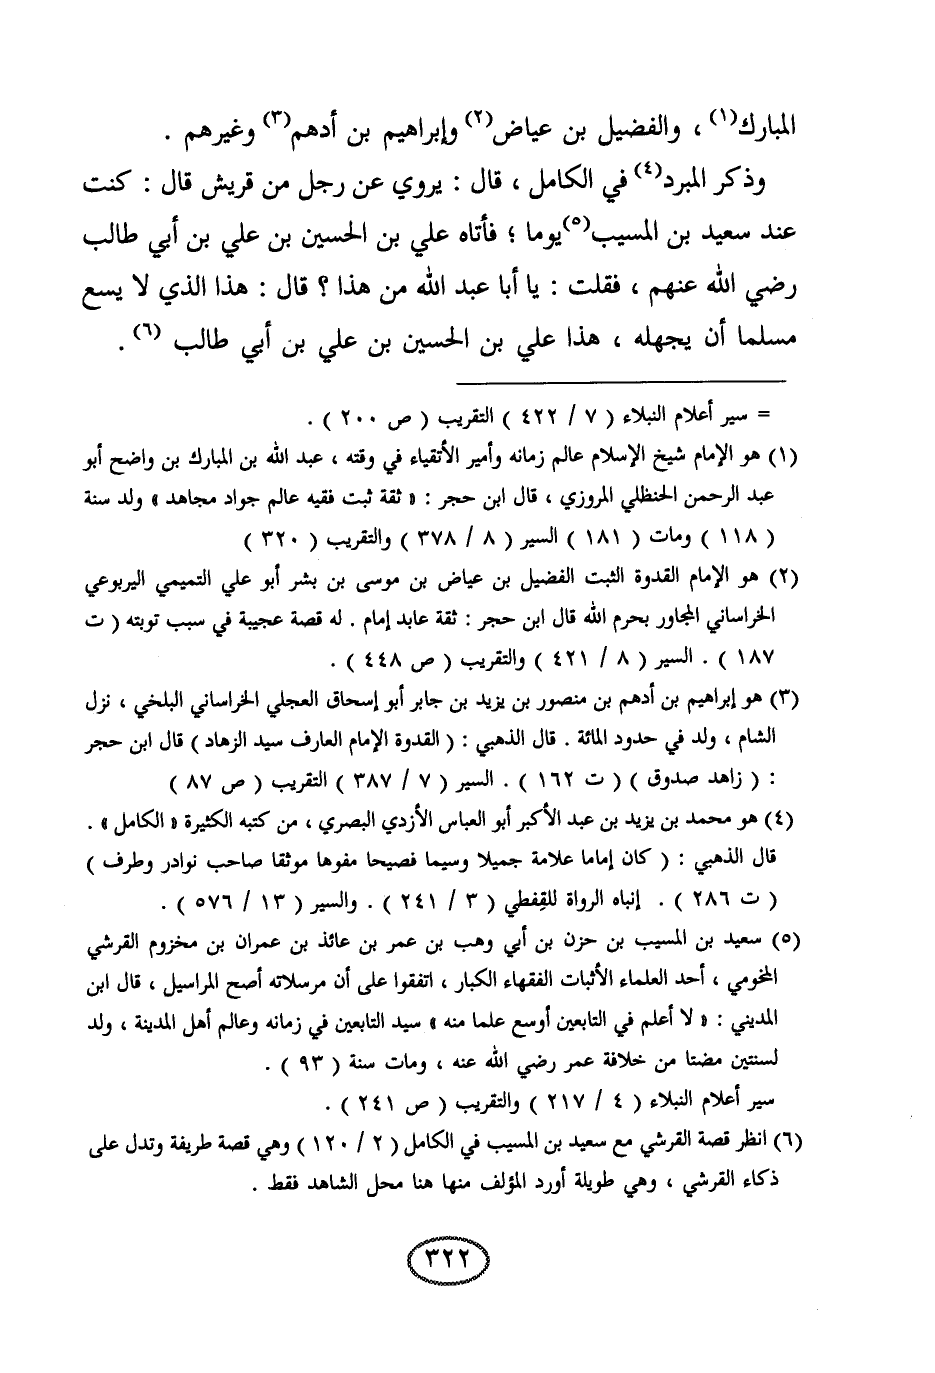 المبارك(١) ، والفضيل بن عياض(٢) وإبراهيم بن أدهم(٣) وغيرهم .
وذكر المبرد(٤) في الكامل ، قال : يروي عن رجل من قريش قال : كنت
عند سعيد بن المسيب(٥) يوما ؛ فأتاه علي بن الحسين بن علي بن أبي طالب
رضي الله عنهم ، فقلت : يا أبا عبد الله من هذا ؟ قال : هذا الذي لا يسع
مسلما أن يجهله ، هذا علي بن الحسين بن علي بن أبي طالب (٦) .
= سير أعلام النبلاء ( ٧ / ٤٢٢ ) التقريب ( ص ٢٠٠ ) .
(١) هو الإمام شيخ الإسلام عالم زمانه وأمير الأتقياء في وقته ، عبد الله بن المبارك بن واضح أبو
عبد الرحمن الحنظلي المروزي ، قال ابن حجر : « ثقة ثبت فقيه عالم جواد مجاهد » ولد سنة
( ١١٨ ) ومات ( ١٨١ ) السير ( ٨ / ٣٧٨ ) والتقريب ( ٣٢٠ )
(٢) هو الإمام القدوة الثبت الفضيل بن عياض بن موسى بن بشر أبو علي التميمي اليربوعي
الخراساني المجاور بحرم الله قال ابن حجر : ثقة عابد إمام . له قصة عجيبة في سبب توبته ( ت
١٨٧ ) . السير ( ٨ / ٤٢١ ) والتقريب ( ص ٤٤٨ ) .
(٣) هو إبراهيم بن أدهم بن منصور بن يزيد بن جابر أبو إسحاق العجلي الخراساني البلخي ، نزل
الشام ، ولد في حدود المائة . قال الذهبي : ( القدوة الإمام العارف سيد الزهاد ) قال ابن حجر
: ( زاهد صدوق ) ( ت ١٦٢ ) . السير ( ٧ / ٣٨٧ ) التقريب ( ص ٨٧ )
(٤) هو محمد بن يزيد بن عبد الأكبر أبو العباس الأزدي البصري ، من كتبه الكثيرة « الكامل » .
قال الذهبي : ( كان إماما علامة جميلا وسيما فصيحا مفوها موثقا صاحب نوادر وطرف )
( ت ٢٨٦ ) . إنباه الرواة للقِفطي ( ٣ / ٢٤١ ) . والسير ( ١٣ / ٥٧٦ ) .
(٥) سعيد بن المسيب بن حزن بن أبي وهب بن عمر بن عائذ بن عمران بن مخزوم القرشي
المخومي ، أحد العلماء الأثبات الفقهاء الكبار ، اتفقوا على أن مرسلاته أصح المراسيل ، قال ابن
المديني : « لا أعلم في التابعين أوسع علما منه » سيد التابعين في زمانه وعالم أهل المدينة ، ولد
لسنتين مضتا من خلافة عمر رضي الله عنه ، ومات سنة ( ٩٣ ) .
سير أعلام النبلاء ( ٤ / ٢١٧ ) والتقريب ( ص ٢٤١ ) .
(٦) انظر قصة القرشي مع سعيد بن المسيب في الكامل ( ٢ / ١٢٠ ) وهي قصة طريفة وتدل على
ذكاء القرشي ، وهي طويلة أورد المؤلف منها هنا محل الشاهد فقط .
٣٢٢